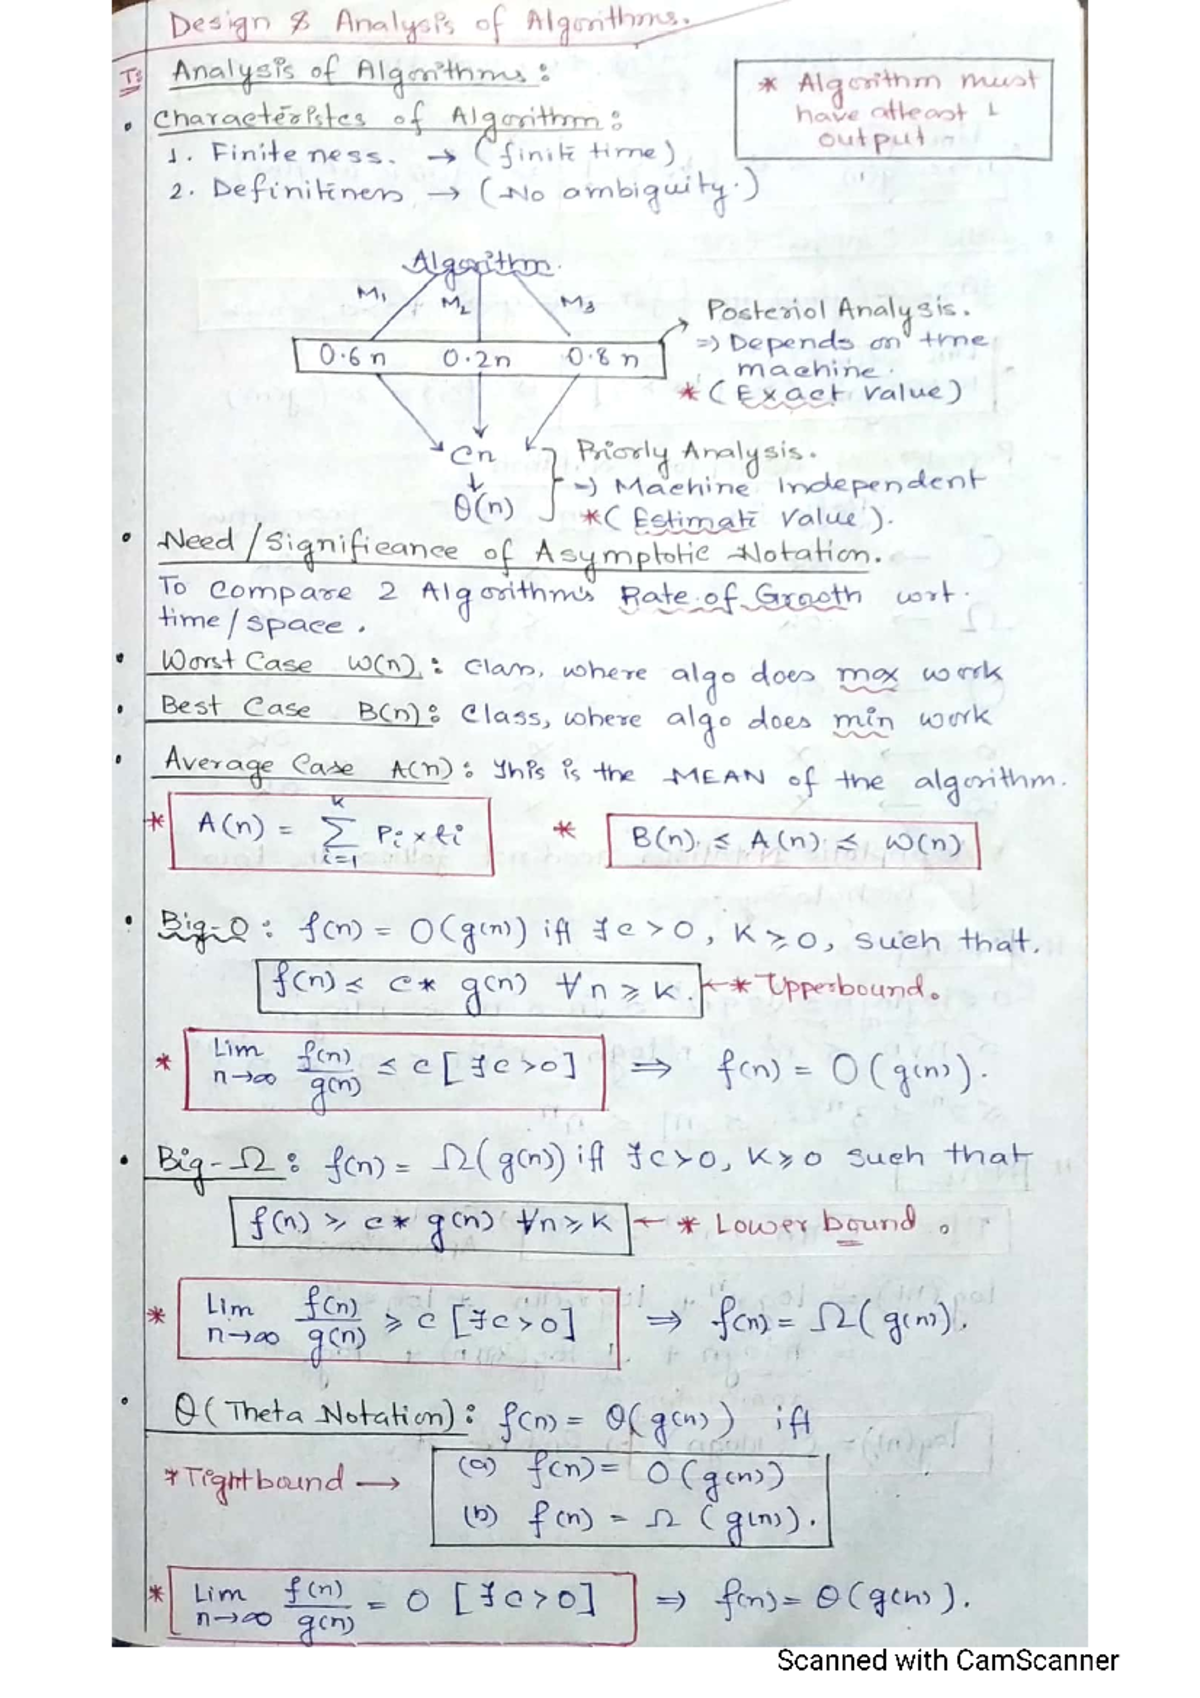 Design & Analysis of Algorithms.
T:
Analysis of Algorithms:
* Algorithm must
have atleast 1
output
• Characteristcs of Algorithm:
1. Finiteness. → (finite time)
2. Definiteness → (No ambiguity.)
Algorithm.
M₁ M₂ M₃
0.6n 0.2n 0.8n
Posteriol Analysis.
=> Depends on the
machine.
* (Exact value)
Cn
↓
θ(n)
Priorly Analysis.
=> Machine Independent
* (Estimate Value).
• Need/Significance of Asymptotic Notation.
To Compare 2 Algorithm's Rate of Growth wrt.
time/space.
• Worst Case W(n): Class, where algo does max work
• Best Case B(n): Class, where algo does min work
• Average Case A(n): This is the MEAN of the algorithm.
* A(n) = ∑ᵢ₌₁ᵏ Pᵢ × tᵢ * B(n) ≤ A(n) ≤ W(n)
• Big-O: f(n) = O(g(n)) iff ∃c>0, K≥0, such that.
f(n) ≤ c* g(n) ∀n≥K. ←* Upperbound.
* Lim n→∞ f(n)/g(n) ≤ c [∃c>0] => f(n) = O(g(n)).
• Big-Ω: f(n) = Ω(g(n)) iff ∃c>0, K≥0 such that
f(n) ≥ c* g(n) ∀n≥K ← * Lower bound.
* Lim n→∞ f(n)/g(n) ≥ c [∃c>0] => f(n) = Ω(g(n)).
• θ(Theta Notation): f(n) = θ(g(n)) iff
* Tightbound → (a) f(n) = O(g(n))
(b) f(n) = Ω(g(n)).
* Lim n→∞ f(n)/g(n) = O [∃c>0] => f(n) = θ(g(n)).
Scanned with CamScanner